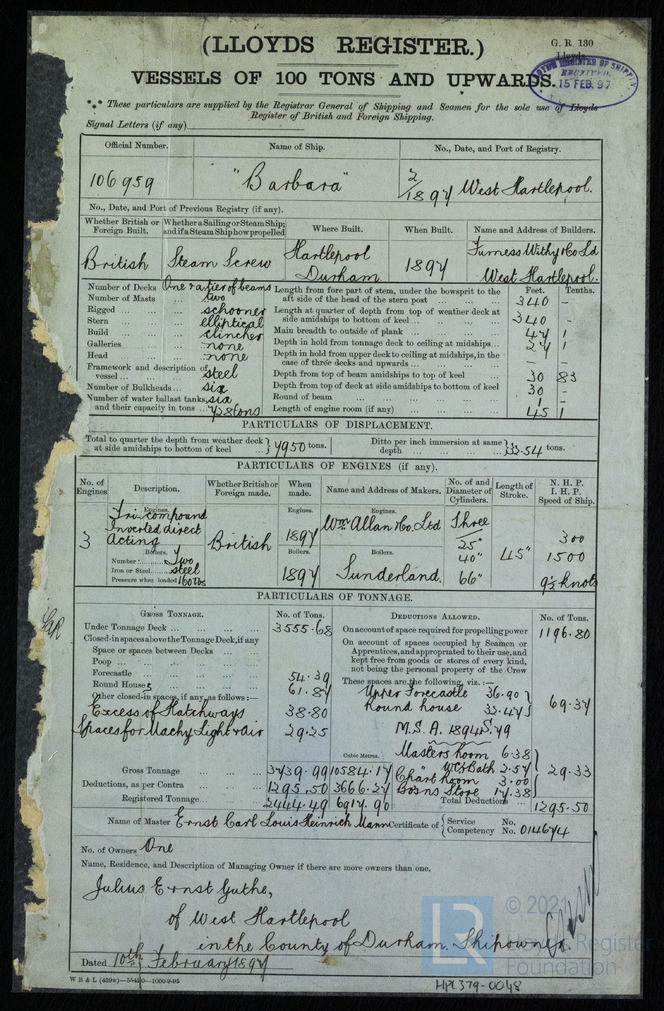 (LLOYDS REGISTER.)
G. R. 130
Lloyds
VESSELS OF 100 TONS AND UPWARDS.
LLOYD'S REGISTER OF SHIPPING
RECEIVED
15 FEB. 97
*** These particulars are supplied by the Registrar General of Shipping and Seamen for the sole use of Lloyds
Register of British and Foreign Shipping.
Signal Letters (if any)
Official Number. Name of Ship. No., Date, and Port of Registry.
106959 "Barbara" 2/1897 West Hartlepool.
No., Date, and Port of Previous Registry (if any).
Whether British or Foreign Built. Whether a Sailing or Steam Ship; and if a Steam Ship how propelled Where Built. When Built. Name and Address of Builders.
British Steam Screw Hartlepool Durham 1897 Furness Withy & Co Ld West Hartlepool.
Number of Decks One & a tier of beams
Number of Masts two
Rigged schooner
Stern elliptical
Build clincher
Galleries none
Head none
Framework and description of vessel steel
Number of Bulkheads six
Number of water ballast tanks, six
and their capacity in tons 728 tons
Feet. Tenths.
Length from fore part of stem, under the bowsprit to the aft side of the head of the stern post 340 -
Length at quarter of depth from top of weather deck at side amidships to bottom of keel 340 -
Main breadth to outside of plank 47 1
Depth in hold from tonnage deck to ceiling at midships 27 1
Depth in hold from upper deck to ceiling at midships, in the case of three decks and upwards -
Depth from top of beam amidships to top of keel 30 83
Depth from top of deck at side amidships to bottom of keel 30 -
Round of beam 1 -
Length of engine room (if any) 45 1
PARTICULARS OF DISPLACEMENT.
Total to quarter the depth from weather deck at side amidships to bottom of keel 7950 tons. Ditto per inch immersion at same depth 33.54 tons.
PARTICULARS OF ENGINES (if any).
No. of Engines Description. Whether British or Foreign made. When made. Name and Address of Makers. No. of and Diameter of Cylinders. Length of Stroke. N. H. P. I. H. P. Speed of Ship.
Engines. Engines. Engines.
3 Tri-compound Inverted direct Acting British 1897 Wm Allan & Co. Ltd Three 25" 40" 66" 45" 300 1500 9½ knots
Boilers. Boilers. Boilers.
Number Two
Iron or Steel steel
Pressure when loaded 160 lbs
1897 Sunderland.
PARTICULARS OF TONNAGE.
GROSS TONNAGE. No. of Tons.
Under Tonnage Deck 3555.68
Closed-in spaces above the Tonnage Deck, if any
Space or spaces between Decks
Poop
Forecastle 54.39
Round Houses 61.87
Other closed-in spaces, if any, as follows:—
Excess of Hatchways 38.80
Spaces for Machy Light & air 29.25
Cubic Metres.
Gross Tonnage 3739.99 10584.17
Deductions, as per Contra 1295.50 3666.27
Registered Tonnage 2444.49 6917.90
DEDUCTIONS ALLOWED. No. of Tons.
On account of space required for propelling power 1196.80
On account of spaces occupied by Seamen or Apprentices, and appropriated to their use, and kept free from goods or stores of every kind, not being the personal property of the Crew
These spaces are the following, viz.:—
Upper Forecastle 36.90
Round house 32.47 69.37
M.S.A. 1894 S. 79
Masters room 6.38
WC & Bath 2.57
Chart room 3.00
Bosns Store 17.38 29.33
Total Deductions 1295.50
Name of Master Ernst Carl Louis Heinrich Mann Certificate of Service Competency No. No. 014674
No. of Owners One
Name, Residence, and Description of Managing Owner if there are more owners than one.
Julius Ernst Guthe,
of West Hartlepool
in the County of Durham. Shipowner
Dated 10th February 1897
W B & L (439w)—55420—1000-9-96
HPL379-0048
LR
© 202
Lloyd's Register
Foundation